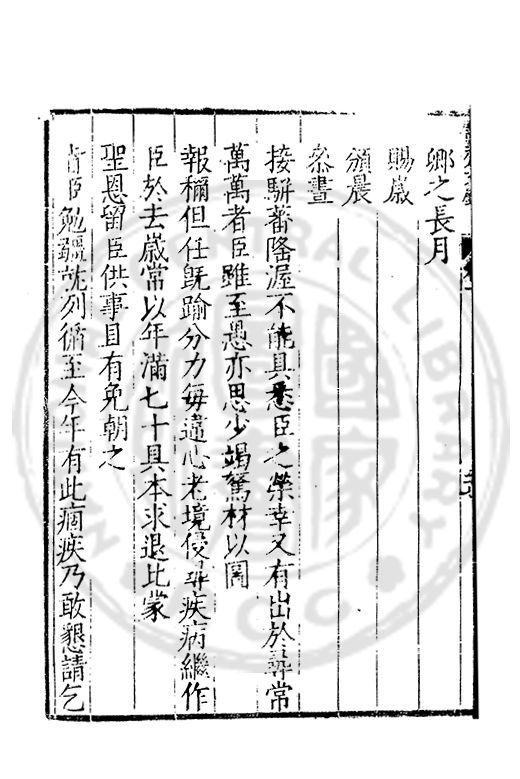 卿之長月
賜歲
頒晨
叅晝
接騈蕃隆渥不能具悉臣之榮幸又有出於尋常
萬萬者臣雖至愚亦思少竭駑材以圖
報稱但任既踰分力每違心老境侵尋疾病繼作
臣於去歲常以年滿七十具本求退比蒙
聖恩留臣供事且有免朝之
旨臣勉彊就列循至今年有此痼疾乃敢懇請乞